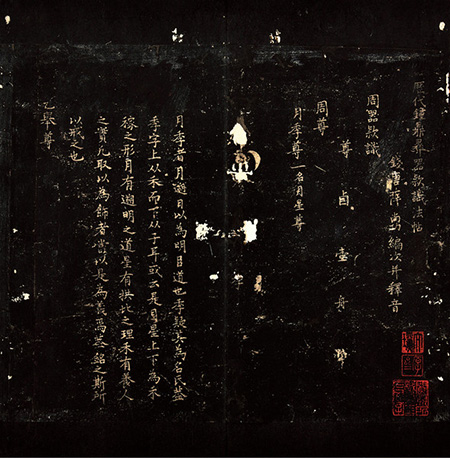 歷代鐘鼎彝器款識法帖
錢唐薛尚功編次并釋音
周器款識
尊 卣 壺 舟
周尊
月季尊一名月星尊
月季者月遡日以為明臣道也季疑其為名氏蓋
季字上从禾而下从子耳或云是月星上下為禾
稼之形月有遡明之道星有拱北之理禾有養人
之實凡取以為飾者當以是為義焉然銘之斯所
以戒之也
乙舉尊